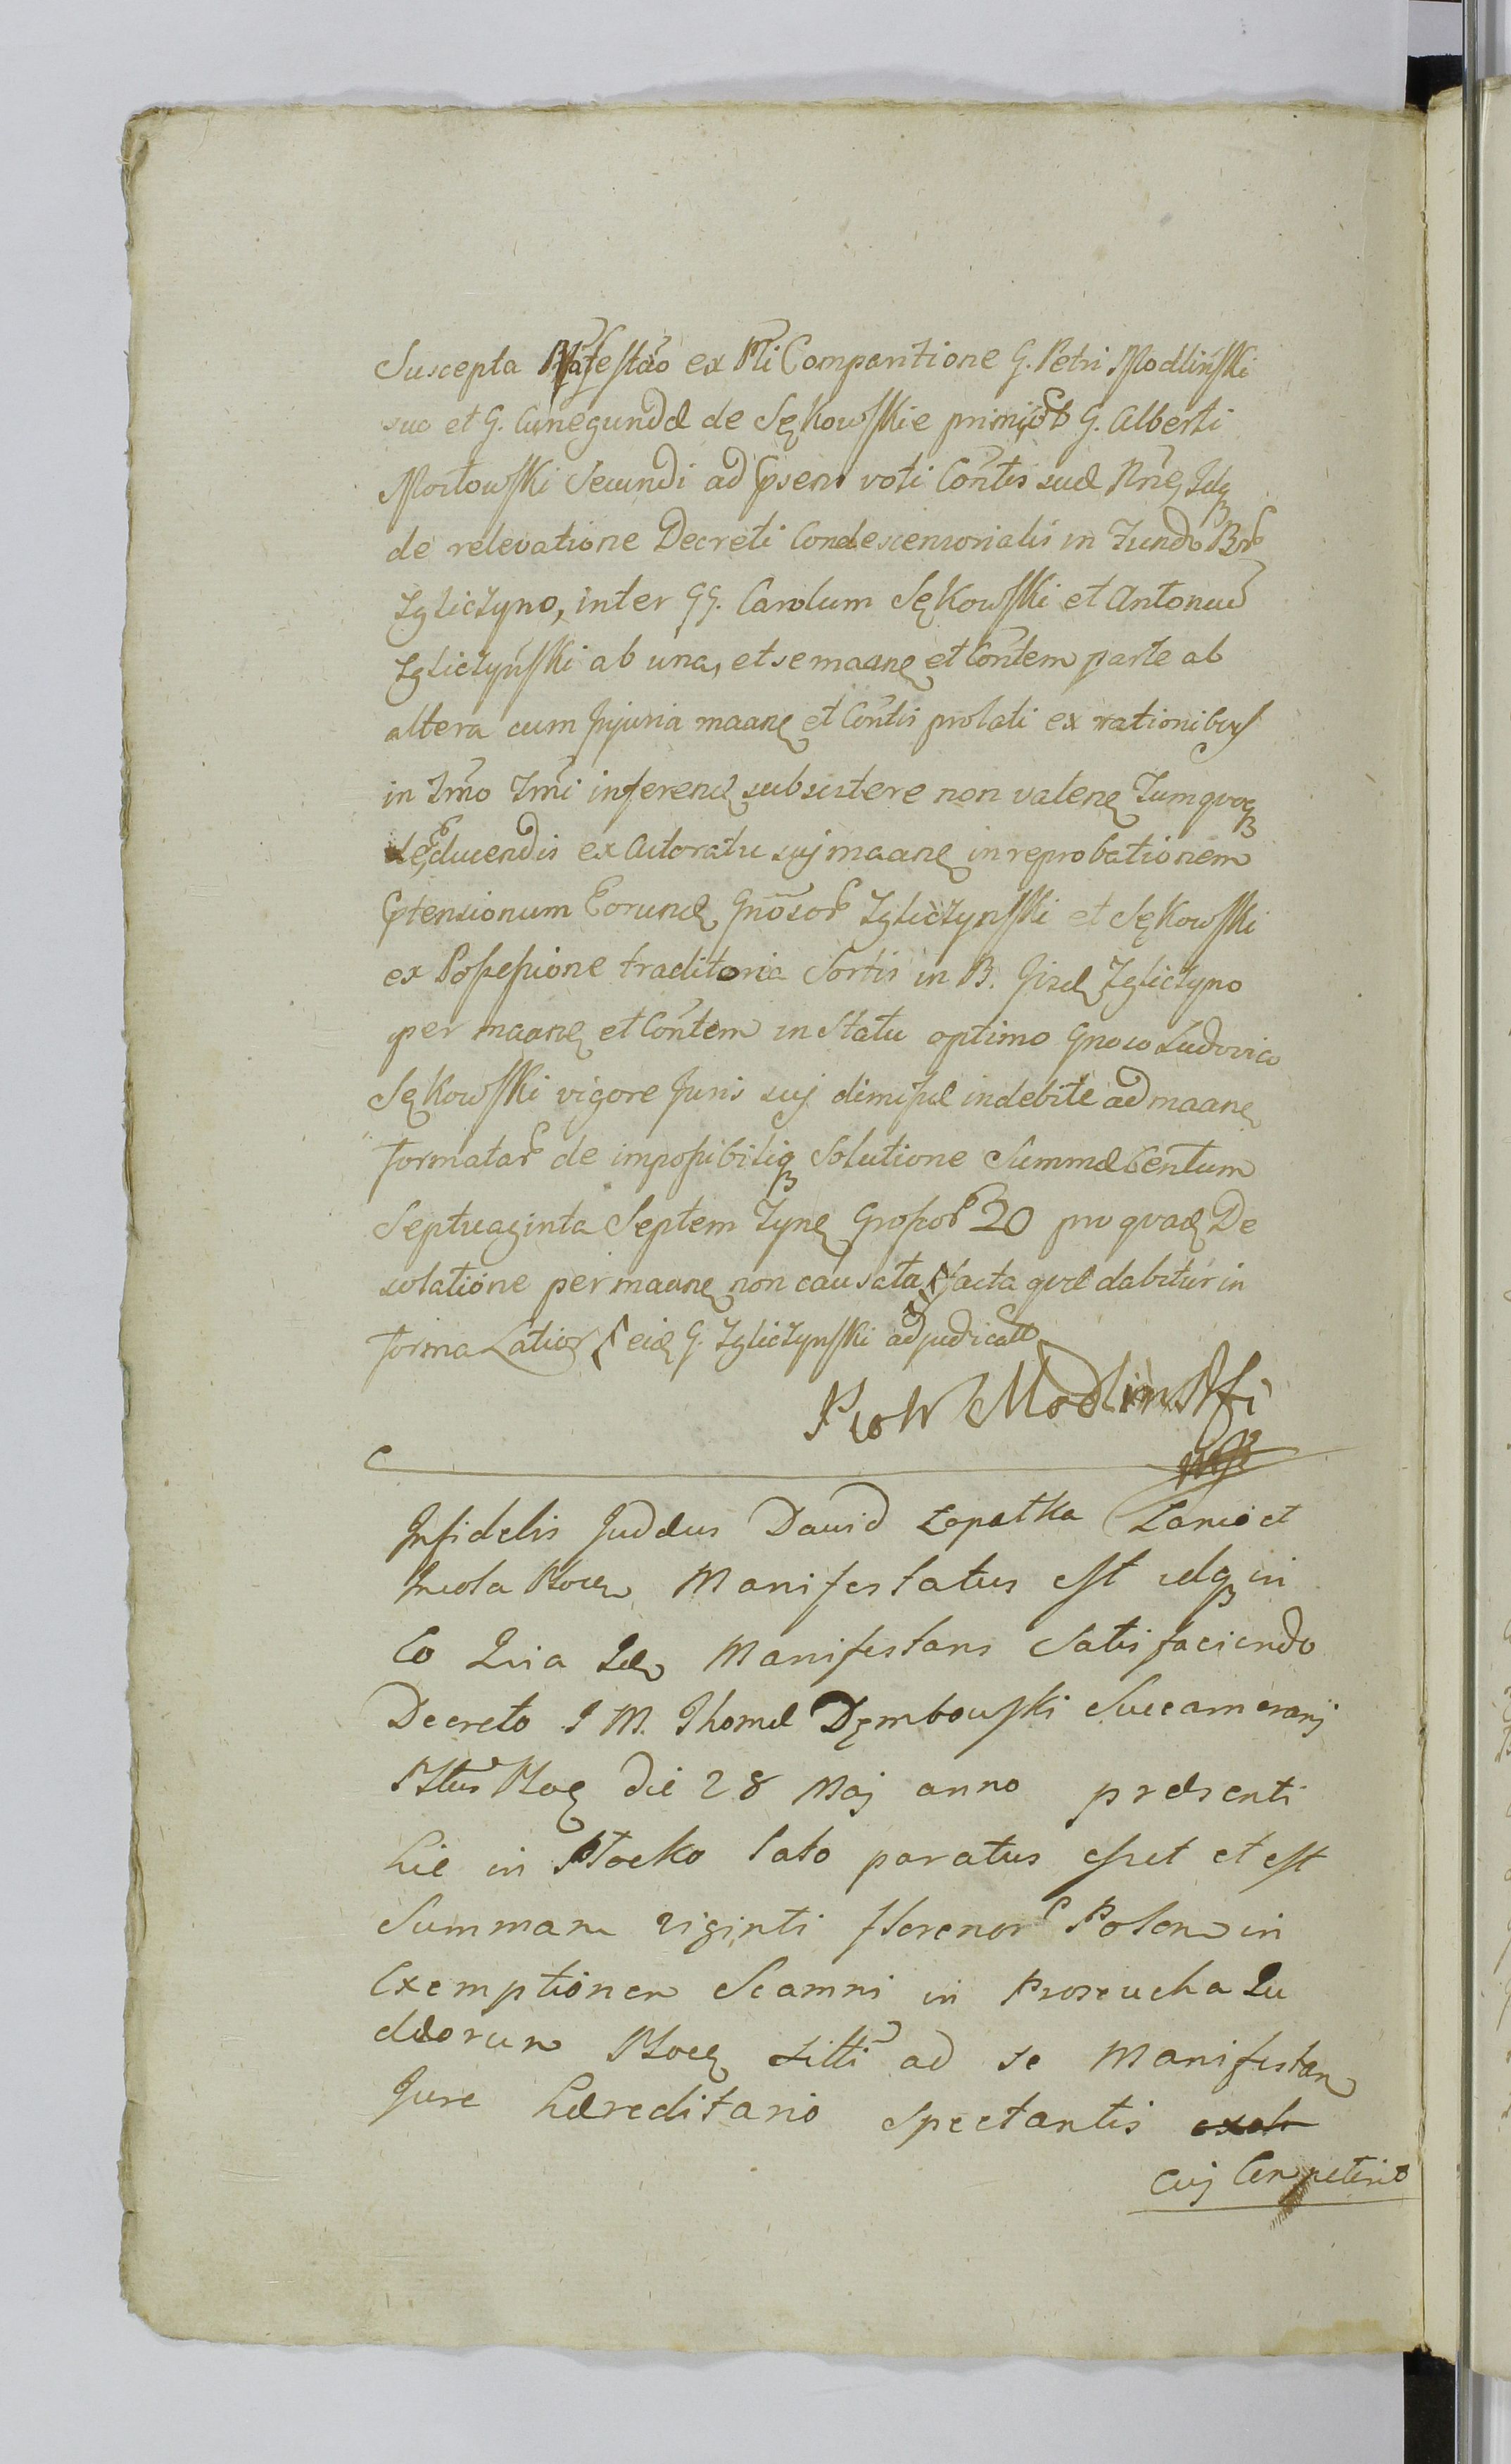 Suscepta Mafestão ex Płi Comparitione G. Petri Modlinski
suo et G. Cunegundæ de Sękowskie primi G. Alberti
Mortowski Secundi ad psens voti Contis suæ Nne Idq
de relevatione Decreti Condescensorialis in Fundo Bor
Zgliczyno, inter GG. Carolum Sękowski et Antonium
Zgliczynski ab una, et se maane et Contem parte ab
altera cum Injuria maane et Contis prolati ex rationibus
in Tmo Tmi inferend subsistere non valene Tumqvoq
deducendis ex Actoratu suj maane in reprobationem
ptensionum Eorund Gnosor Zgliczynski et Sękowski
ex Possessione traditoria Sortis in B. Gizd Zgliczyno
per maane et Contem in Statu optimo Gnoso Ludovico
Sękowski vigore Juris suj dimissæ indebite ad maane
formatar de impossibiliq Solutione Summæ Centum
Septuaginta Septem Tyne Grossor 20 pro qvad De
solatione per maane non causata facta qvæ dabitur in
forma Latior eid G. Zgliczynski adjudicatt
Piotr Modlinski
Infidelis Judæus David Łopatka Lanio et
Incola Plocen Manifestatus est idq in
Eo Quia Idem Manifestans Satisfaciendo
Decreto I M. Thomæ Dęmbowski Succamerarij
Pltus Ploc die 28 Maj anno præsenti
hic in Płocko lato paratus esset et est
Summam viginti florenor Polon in
Exemptionem Scamni in Proseucha Ju
dæorum Ploce sitti ad se Manifestan
Jure hæreditario spectantis
Cuj Competerit